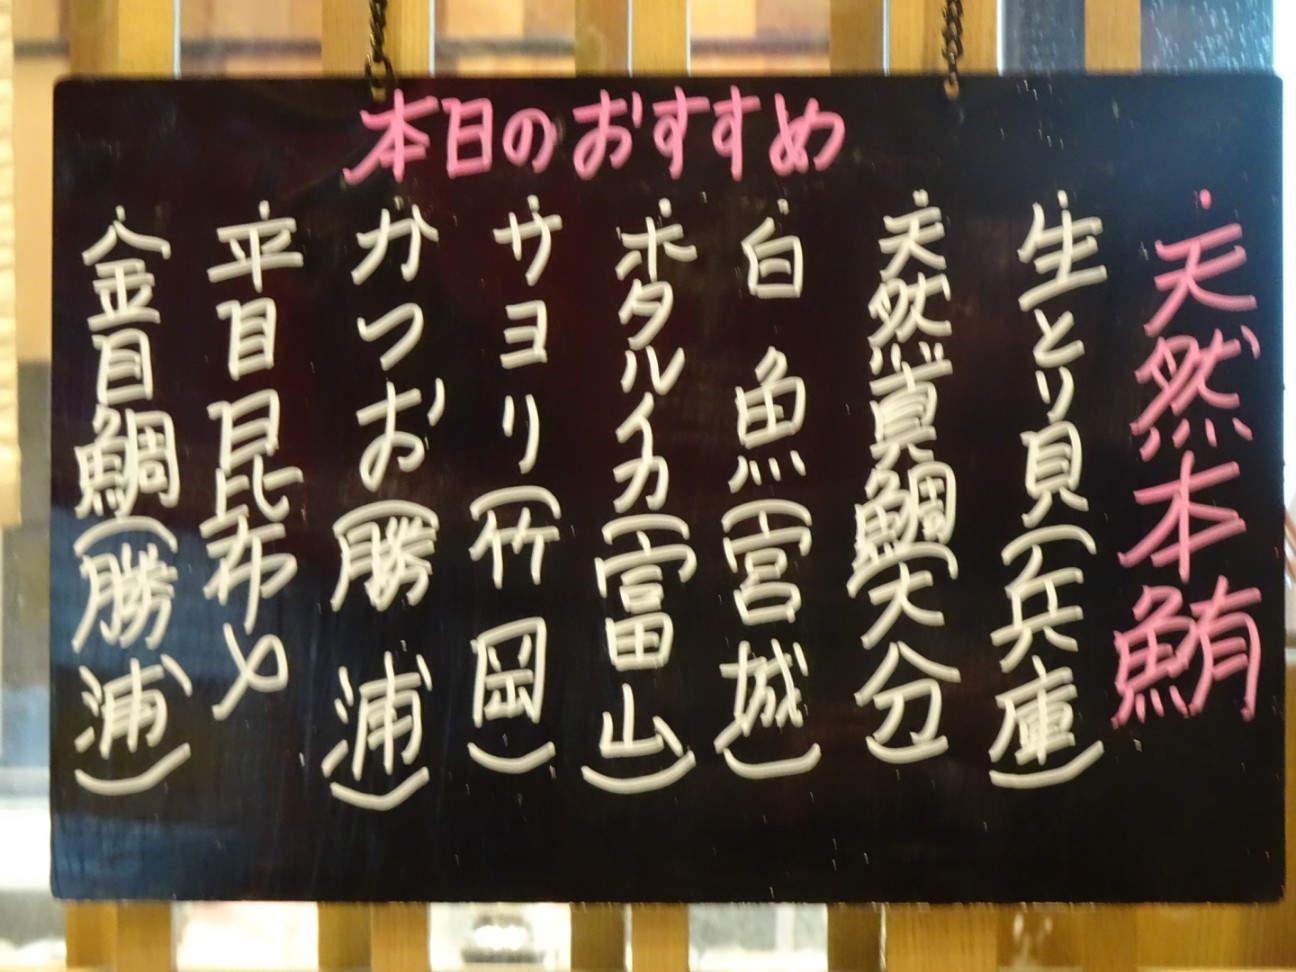 本日のおすすめ
・天然本鮪
・生とり貝(兵庫)
・天然真鯛(大分)
・白魚(宮城)
・ホタルイカ(富山)
・サヨリ(竹岡)
・かつお(勝浦)
・平目昆布〆
・金目鯛(勝浦)